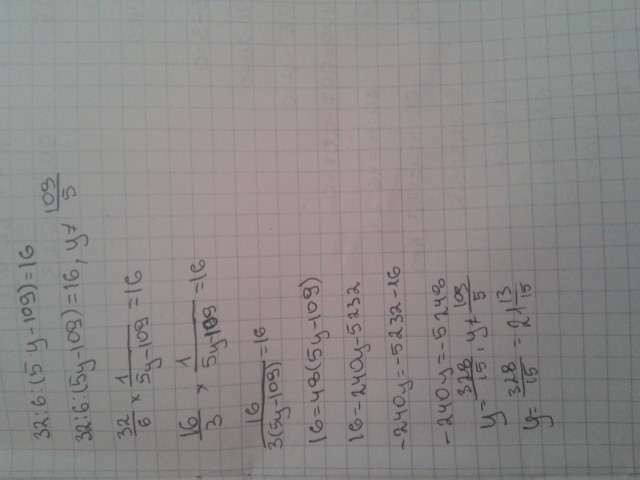 32:6:(5y-109)=16
32:6:(5y-109)=16, y≠109/5
32/6 × 1/(5y-109) =16
16/3 × 1/(5y-109) =16
16/(3(5y-109)) =16
16=48(5y-109)
16=240y-5232
-240y=-5232-16
-240y=-5248
y=328/15, y≠109/5
y=328/15 = 21 13/15